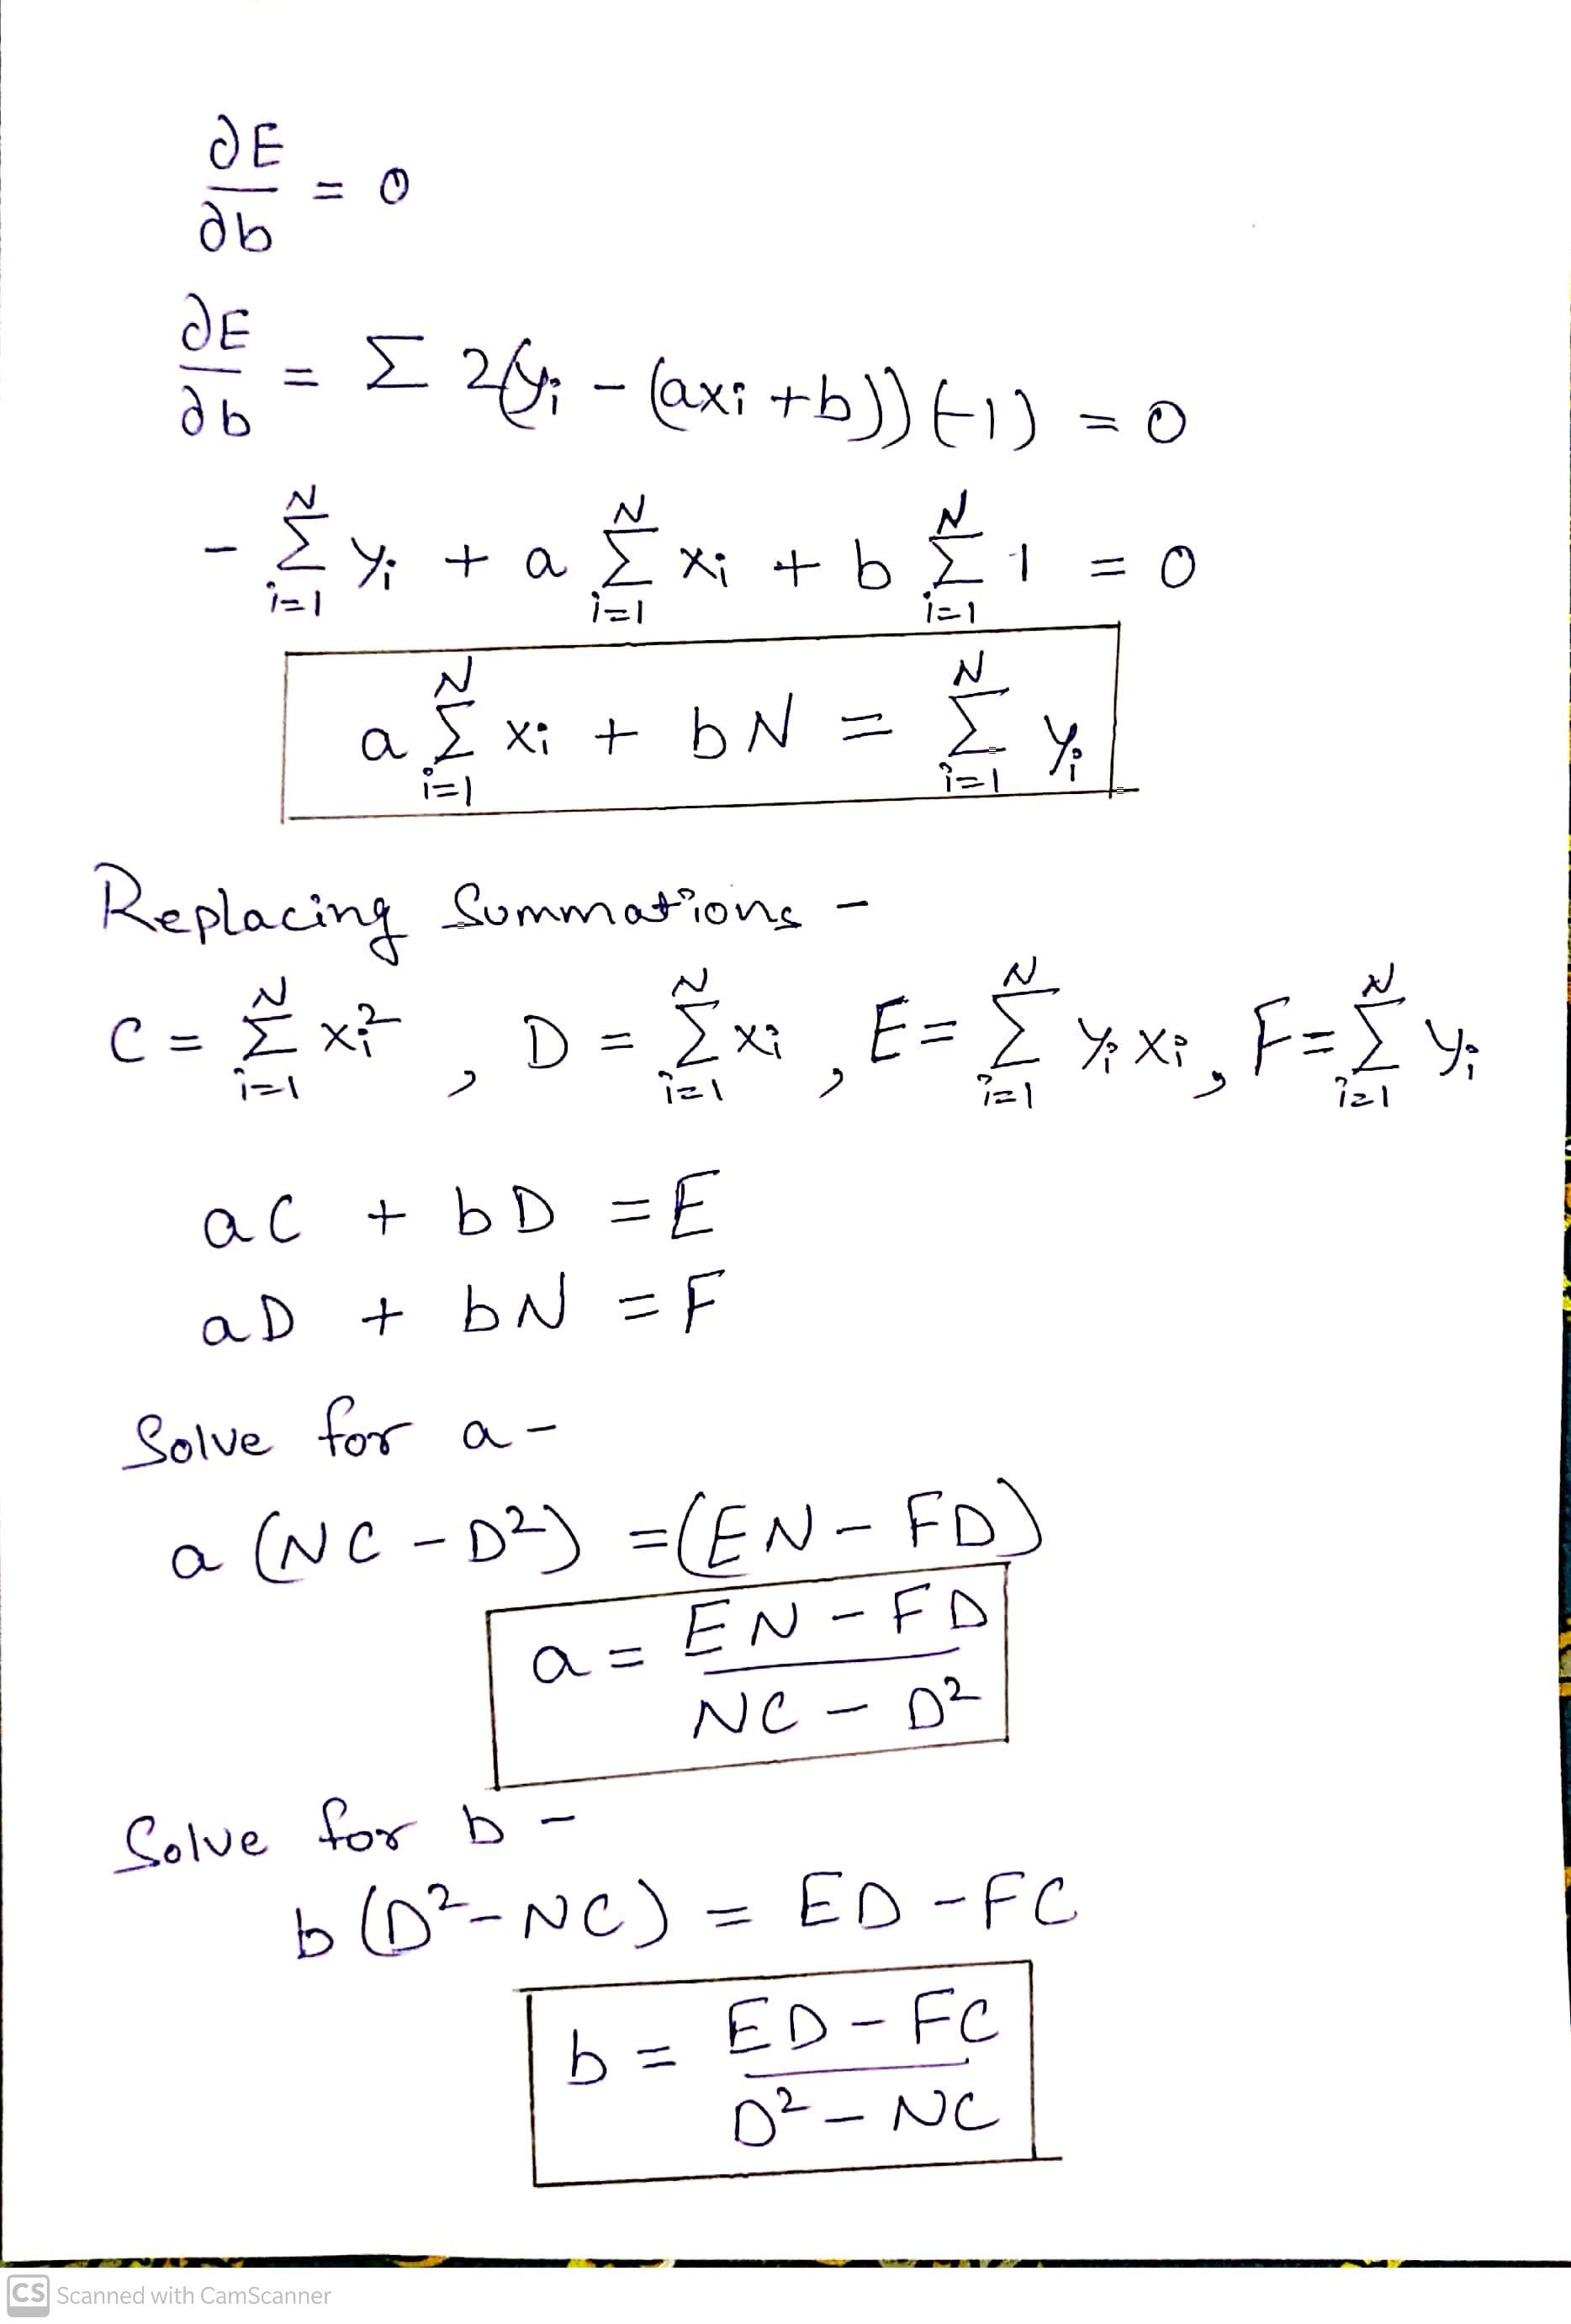 ∂E/∂b = 0
∂E/∂b = Σ 2(yᵢ - (axᵢ + b))(-1) = 0
- Σᵢ₌₁ᴺ yᵢ + a Σᵢ₌₁ᴺ xᵢ + b Σᵢ₌₁ᴺ 1 = 0
a Σᵢ₌₁ᴺ xᵢ + bN = Σᵢ₌₁ᴺ yᵢ
Replacing Summations -
C = Σᵢ₌₁ᴺ xᵢ² , D = Σᵢ₌₁ᴺ xᵢ , E = Σᵢ₌₁ᴺ yᵢxᵢ , F = Σᵢ₌₁ᴺ yᵢ
aC + bD = E
aD + bN = F
Solve for a -
a (NC - D²) = (EN - FD)
a = (EN - FD)/(NC - D²)
Solve for b -
b (D² - NC) = ED - FC
b = (ED - FC)/(D² - NC)
CS Scanned with CamScanner